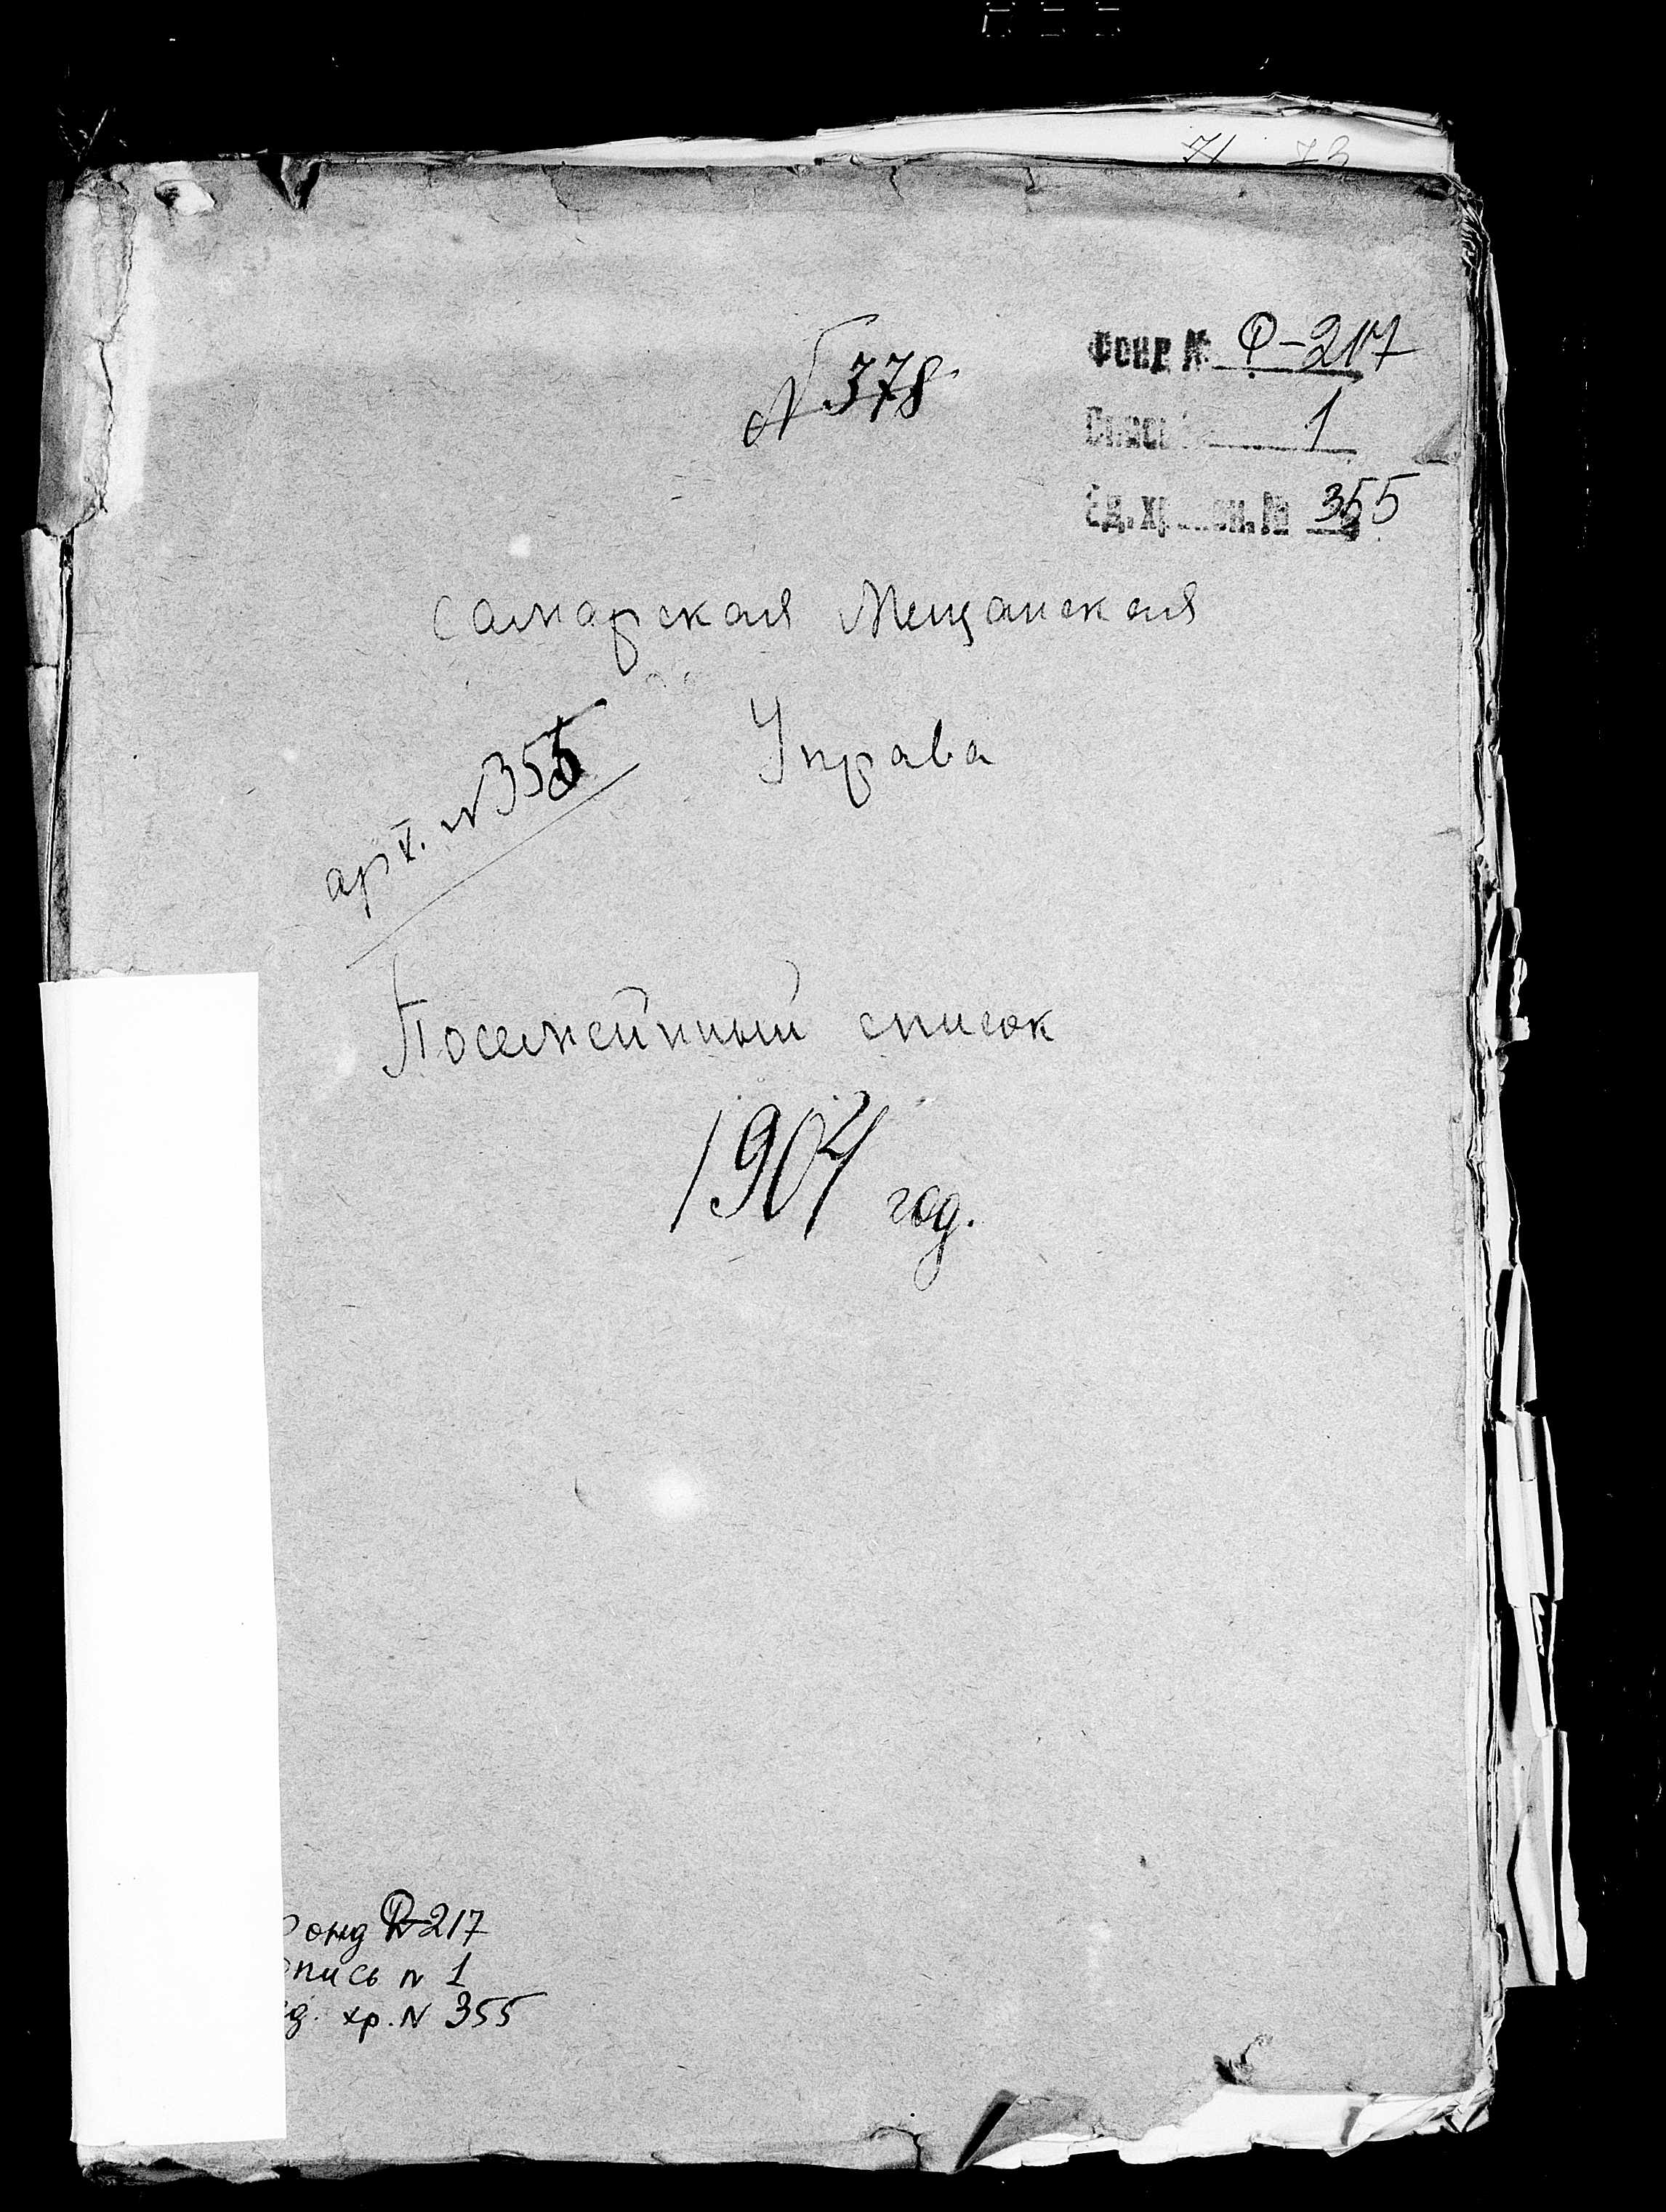 71 73
№ 378
Фонд № Ф-217
Опись 1
Ед. хранен. № 355
Самарская Мещанская
Управа
арх. № 355
Посемейный список
1904 год.
фонд Ф-217
опись № 1
ед. хр. № 355